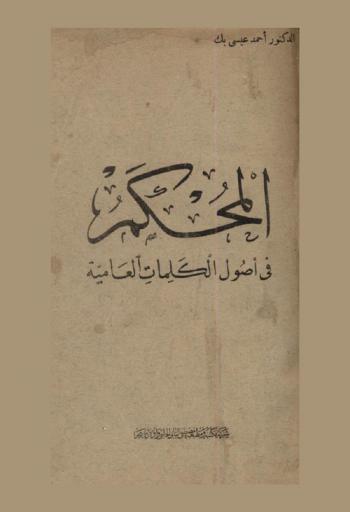 الدكتور أحمد عيسى بك
المُحْكَم
فى أصُول الكَلِمات العَاميَّة